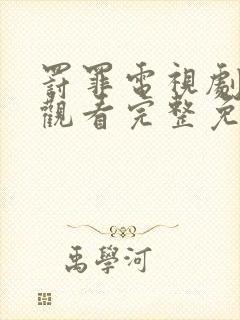 罰罪電視劇
觀看完整免
禹學河